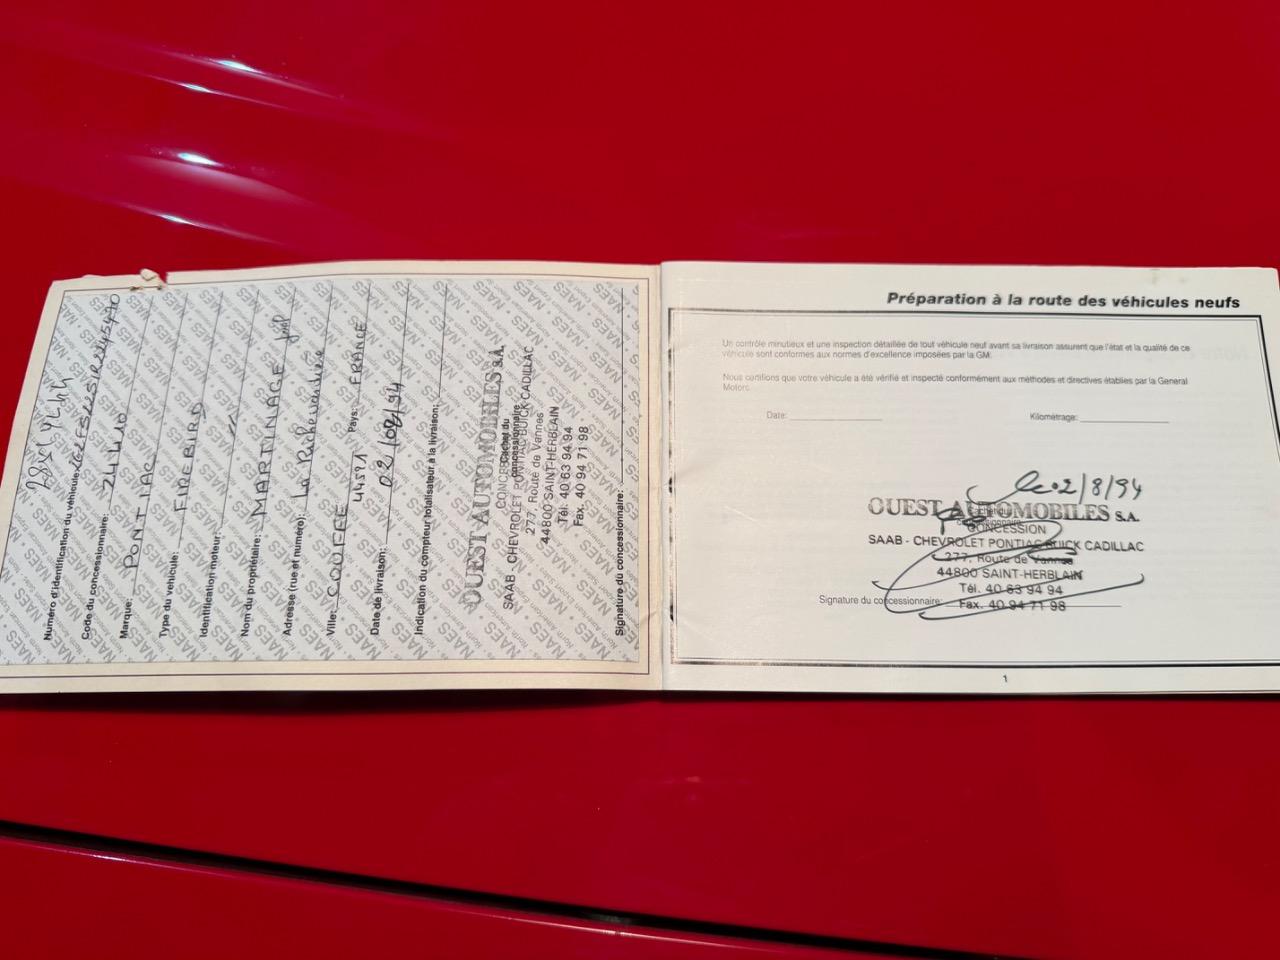 Numéro d'identification du véhicule:
Code du concessionnaire: 24410
Marque: PONTIAC
Type du véhicule: FIREBIRD
Identification moteur:
Nom du propriétaire: MARTINAGE
Adresse (rue et numéro): La
Ville: COUFFE 44521 Pays: FRANCE
Date de livraison: 02/08/94
Indication du compteur totalisateur à la livraison:
OUEST AUTOMOBILES S.A.
Cachet du
concessionnaire
SAAB - CHEVROLET PONTIAC BUICK CADILLAC
277, Route de Vannes
44800 SAINT-HERBLAIN
Tél. 40 63 94 94
Fax. 40 94 71 98
Signature du concessionnaire:
Préparation à la route des véhicules neufs
Un contrôle minutieux et une inspection détaillée de tout véhicule neuf avant sa livraison assurent que l'état et la qualité de ce
véhicule sont conformes aux normes d'excellence imposées par la GM.
Nous certifions que votre véhicule a été vérifié et inspecté conformément aux méthodes et directives établies par la General
Motors.
Date: Kilométrage:
le 02/8/94
OUEST AUTOMOBILES S.A.
Cachet du
CONCESSION
SAAB - CHEVROLET PONTIAC BUICK CADILLAC
277, Route de Vannes
44800 SAINT-HERBLAIN
Tél. 40 63 94 94
Signature du concessionnaire: Fax. 40 94 71 98
1